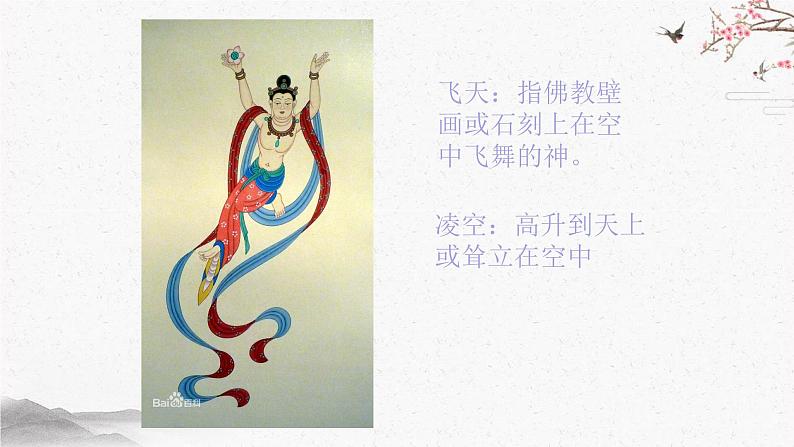 飞天：指佛教壁
画或石刻上在空
中飞舞的神。
凌空：高升到天上
或耸立在空中
Bai百科